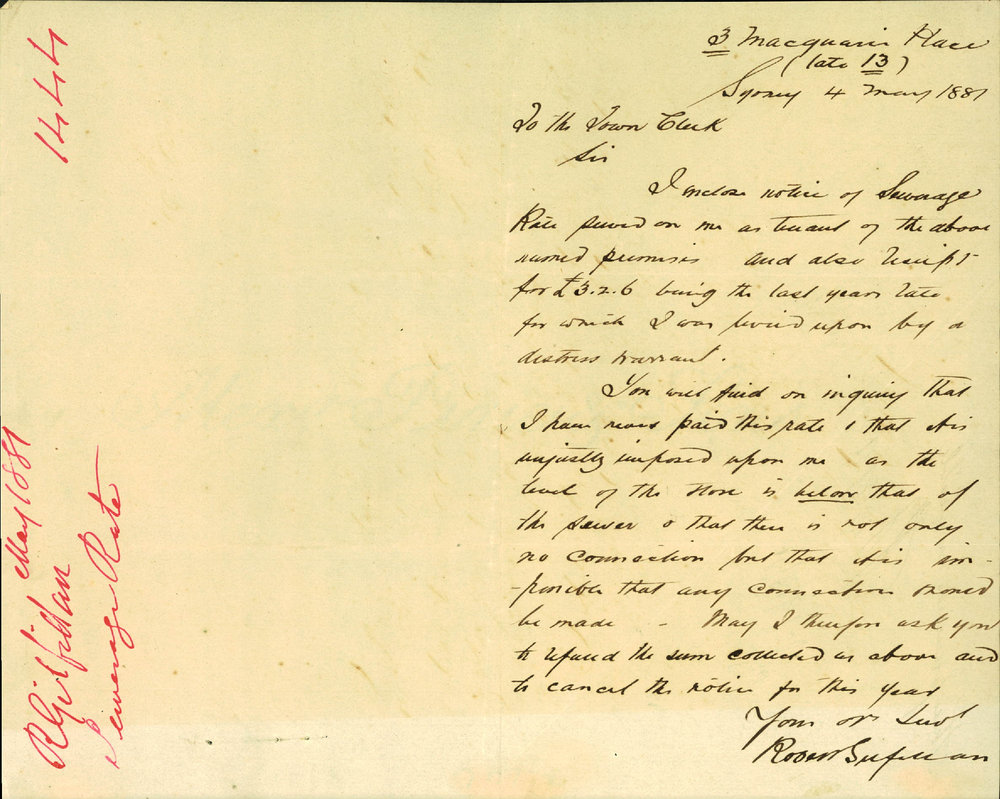 3 Macquarie Place
(late 13)
Sydney 4 May 1881
To the Town Clerk
Sir
I enclose notice of Sewerage
Rate served on me as tenant of the above
named premises and also receipt
for £3.2.6 being the last years rate
for which I was levied upon by a
distress warrant.
You will find on inquiry that
I have never paid this rate & that it is
unjustly imposed upon me as the
level of the store is below that of
the sewer & that there is not only
no connection but that it is im-
-possible that any connection should
be made - May I therefore ask you
to refund the sum collected as above and
to cancel the notice for this year
Your ob. Servt
Robert Gilfillan
1444
May 1881
R Gilfillan
Sewerage Rate